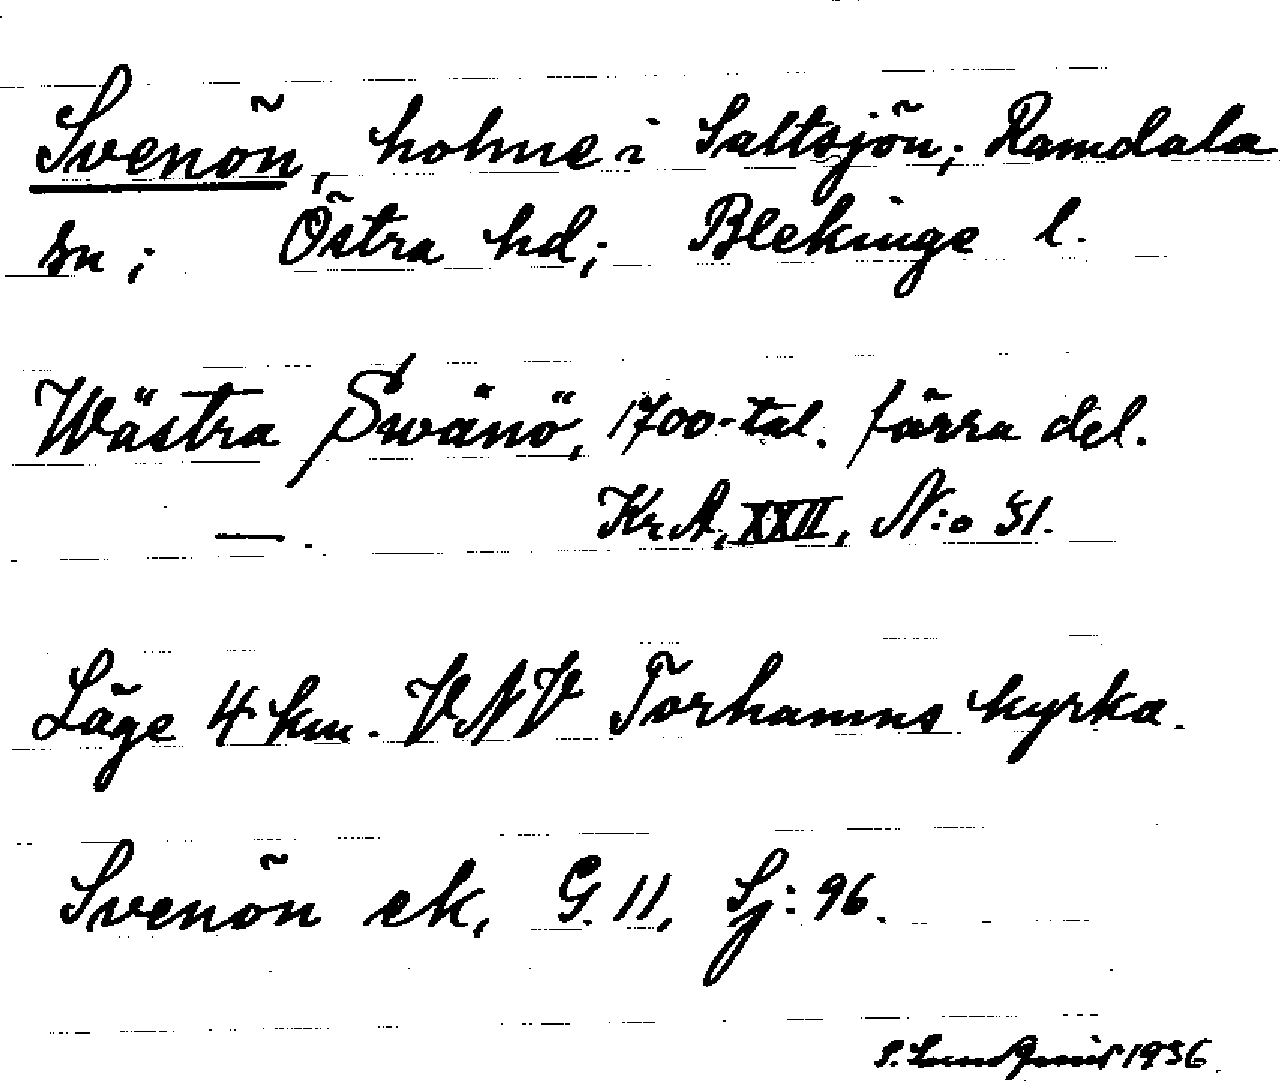 Svenön, holme i Saltsjön; Ramdala
sn; Östra hd; Blekinge l.
Wästra Swänö, 1700-tal. färra del.
—. Kr.A, XXII, N:o 51.
Läge 4 km. VNV Torhamns kyrka.
Svenön ek, G. 11, Sj: 96.
S. Lundquist 1936.